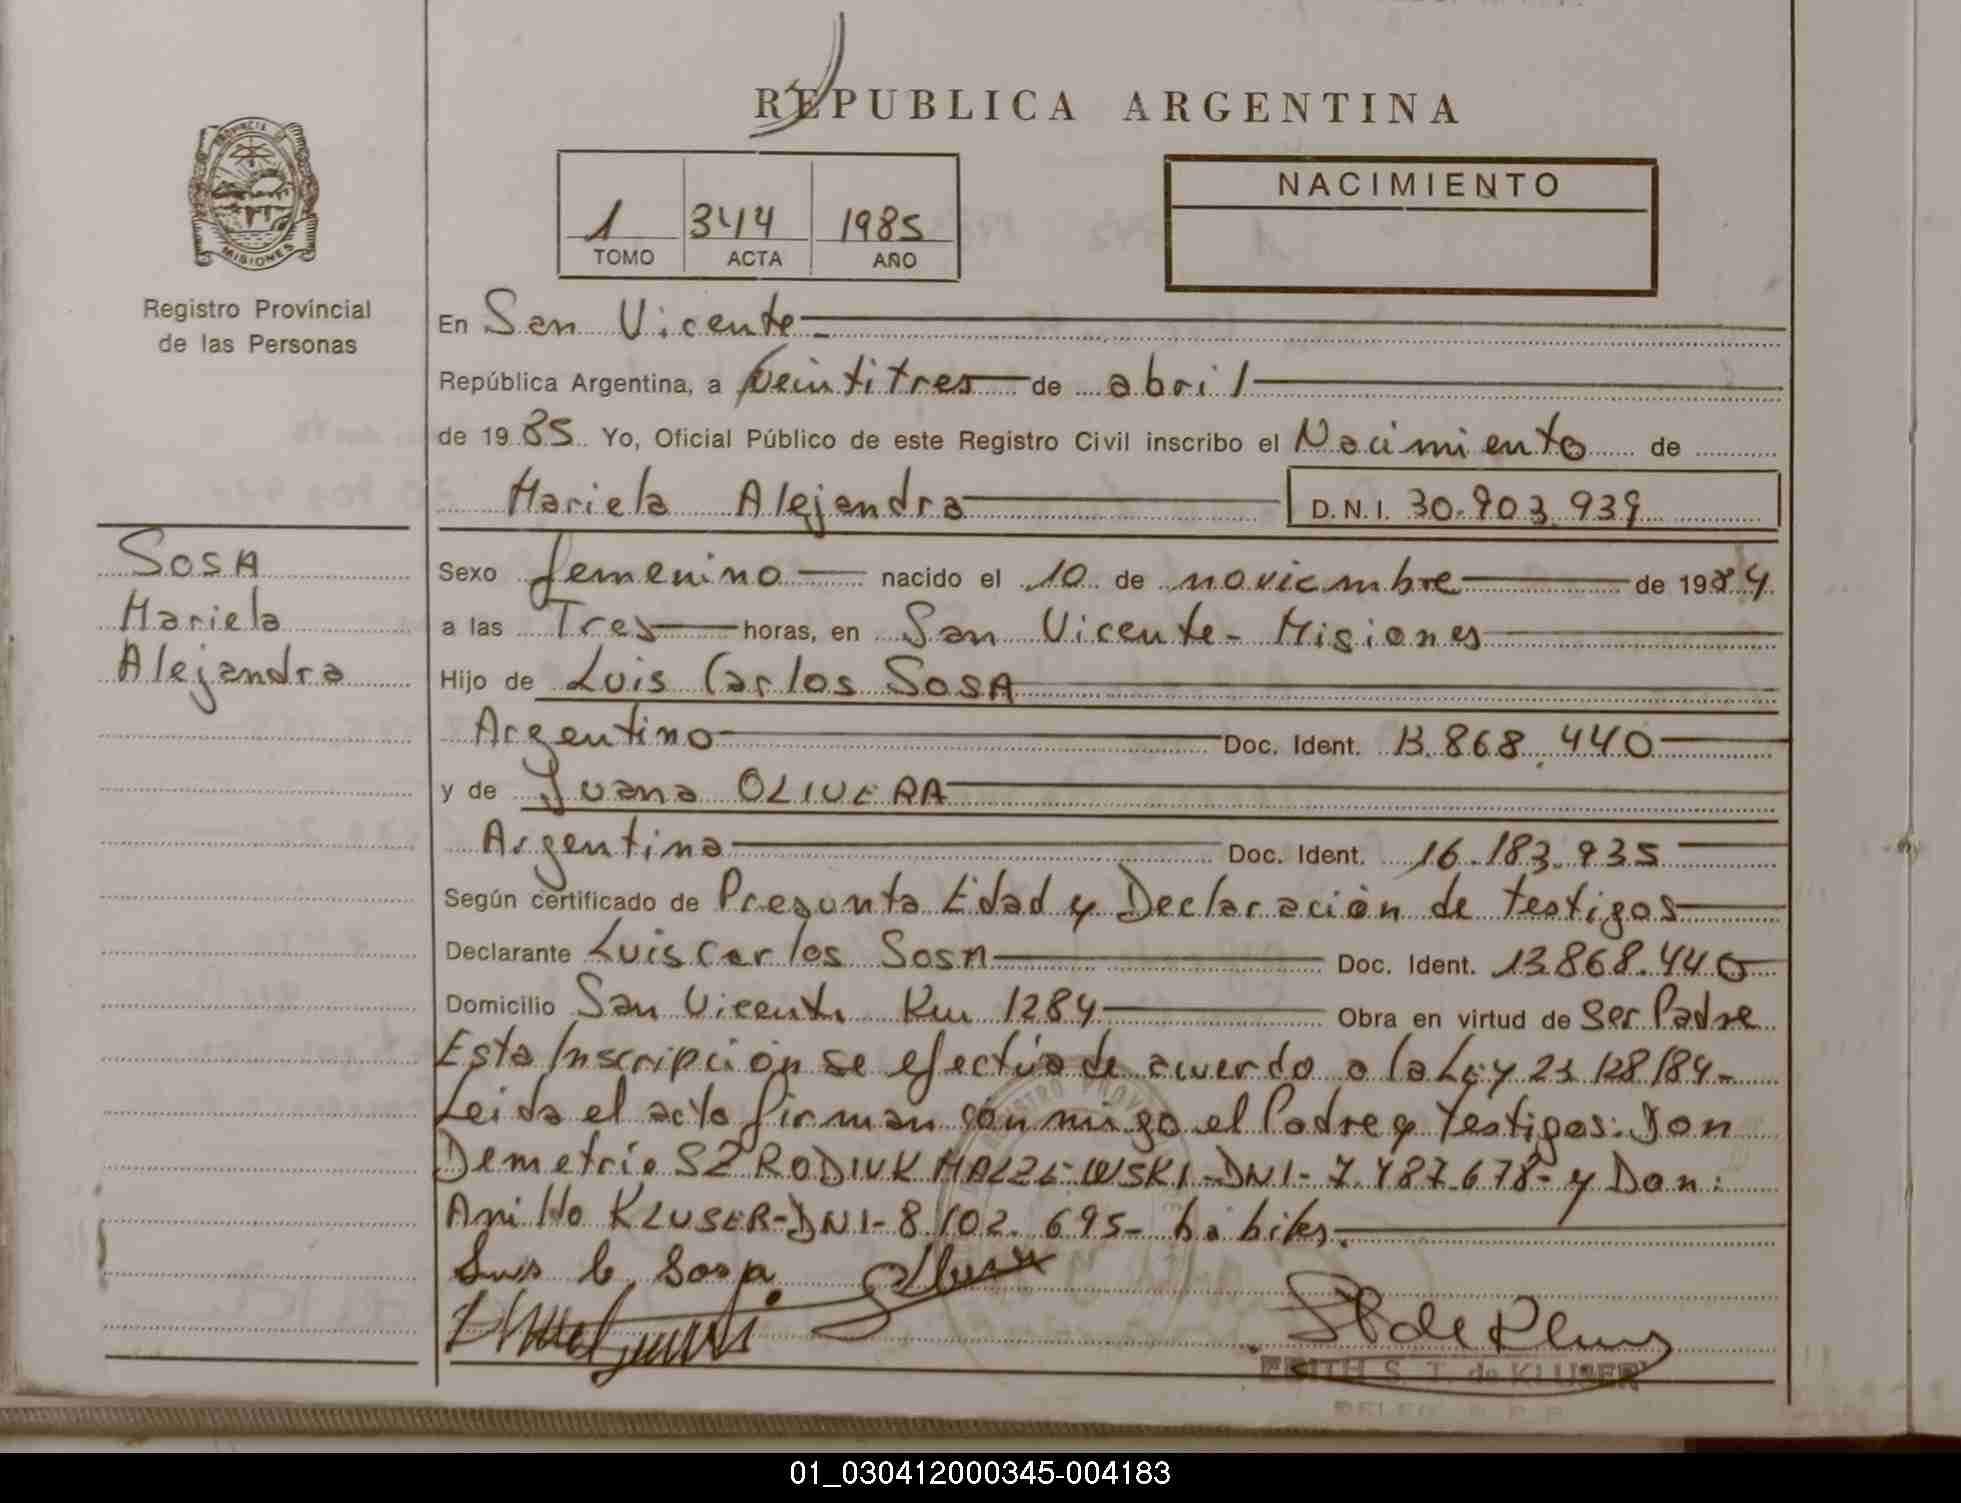 REPUBLICA ARGENTINA
PROVINCIA
MISIONES
Registro Provincial
de las Personas
1 344 1985
TOMO ACTA AÑO
NACIMIENTO
En San Vicente
República Argentina, a Veintitres de abril
de 1985 Yo, Oficial Público de este Registro Civil inscribo el Nacimiento de
Mariela Alejandra D.N.I. 30.903.939
SOSA
Mariela
Alejandra
Sexo femenino nacido el 10 de noviembre de 1984
a las Tres horas, en San Vicente - Misiones
Hijo de Luis Carlos SOSA
Argentino Doc. Ident. 13.868.440
y de Juana OLIVERA
Argentina Doc. Ident. 16.183.935
Según certificado de Presunta Edad y Declaración de testigos
Declarante Luis Carlos Sosa Doc. Ident. 13.868.440
Domicilio San Vicente Km 1284 Obra en virtud de Ser Padre
Esta Inscripción se efectúa de acuerdo a la Ley 23128/84-
Leida el acta firman conmigo el Padre y testigos: Don
Demetrio SZRODIUK MALZEWSKI-DNI-7.487.678- y Don:
KLUSER-DNI-8.102.695- hábiles.
Luis C. Sosa
EDITH S. T. de KLUSER
01_030412000345-004183